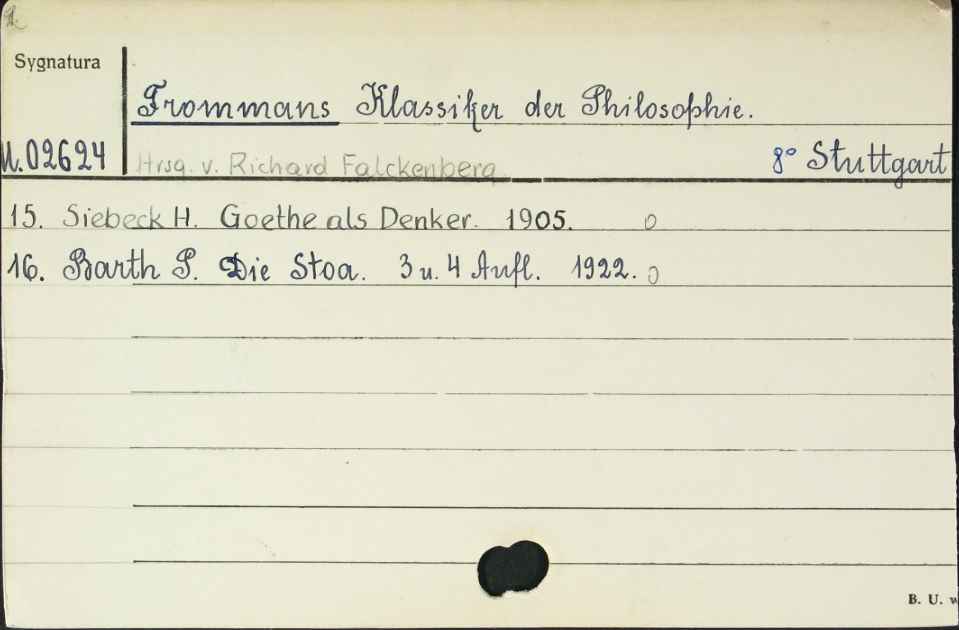 Sygnatura
Frommans Klassiker der Philosophie.
U.02624
Hrsg. v. Richard Falckenberg
8° Stuttgart
15. Siebeck H. Goethe als Denker. 1905. o
16. Barth P. Die Stoa. 3 u. 4 Aufl. 1922. o
B. U. w